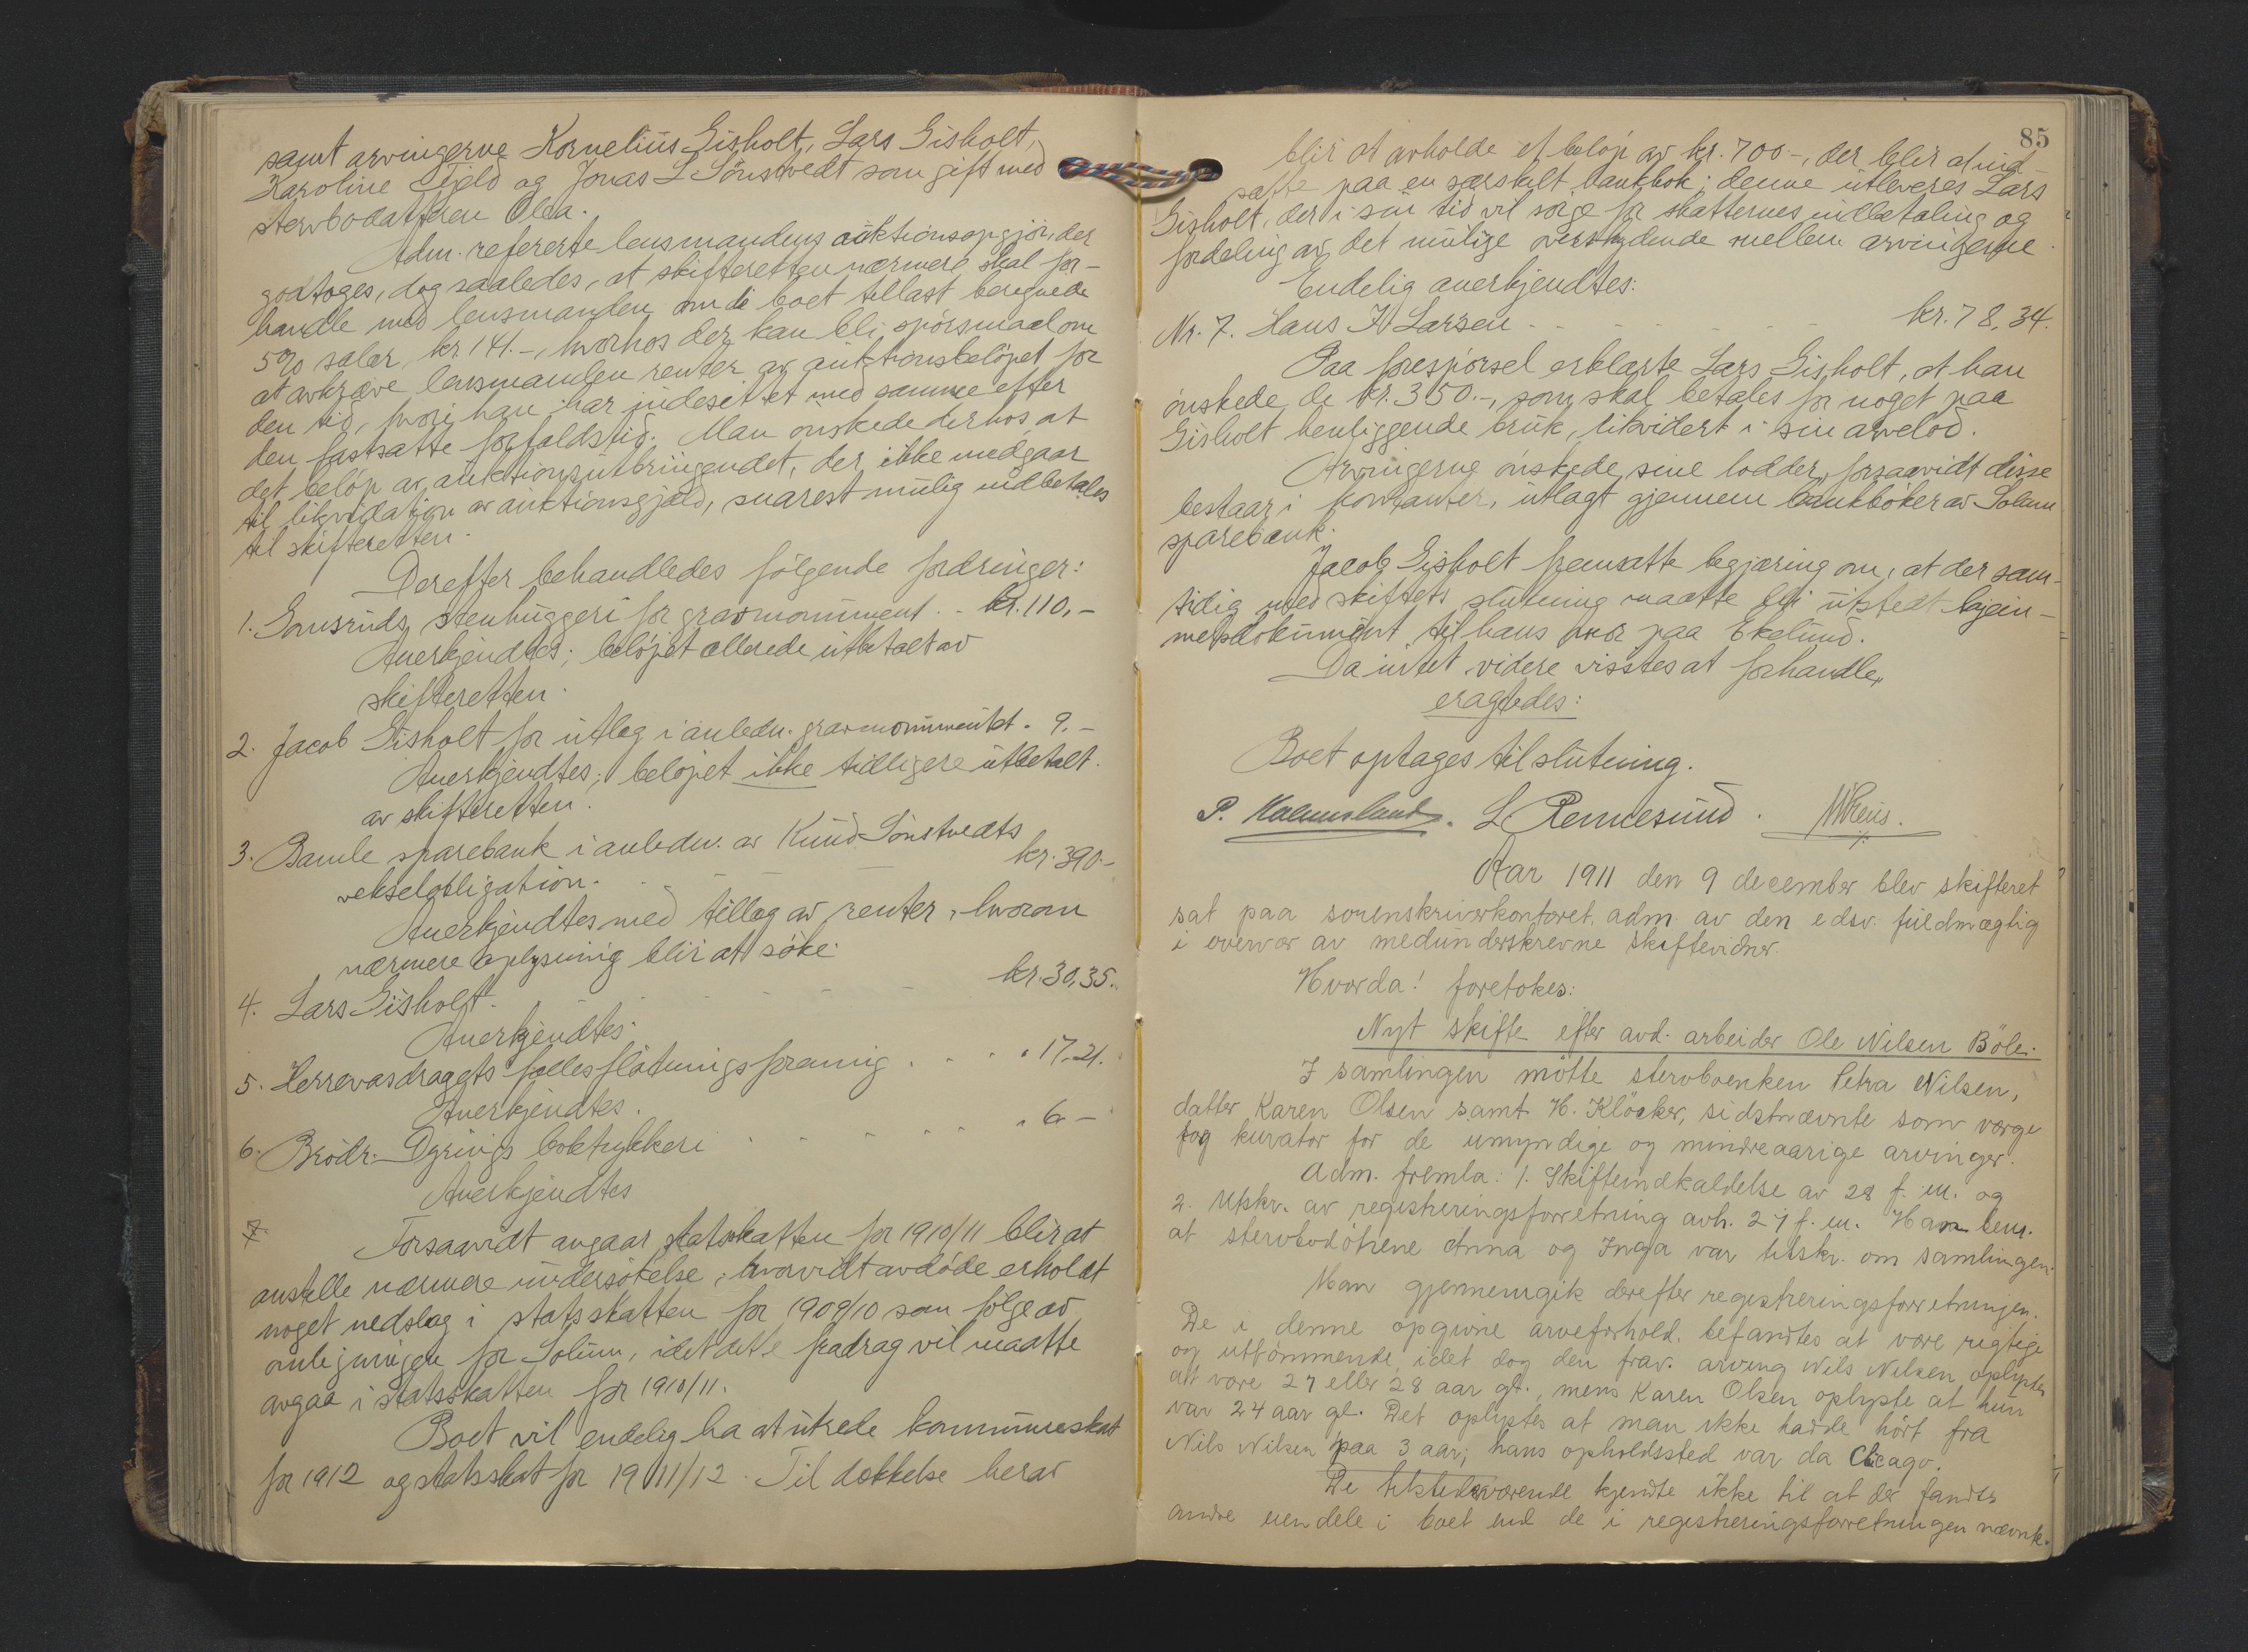 samt arvingerne Kornelius Gisholt, Lars Gisholt,
Karoline Fjeld og Jonas L Sönstvedt som gift med
stervbodatteren Olea.
Adm. refererte lensmandens auktionsopgjör, der
godtoges, dog saaledes, at skifteretten nærmere skal for-
handle med lensmanden om de boet tillast beregnede
5% salær, kr. 141.-, hvorhos der kan bli spörsmaal om
at avkræve lensmanden renter av auktionsbelöpet for
den tid, hvori han har indesittet med samme efter
den fastsatte forfaldstid. Man önskede derhos at
det belöp av auktionsutbringendet, der ikke medgaar
til likvidation av auktionsgjæld, snarest mulig indbetales
til skifteretten.
Derefter behandledes følgende fordringer:
1. Gonsruds stenhuggeri for gravmonument .. kr. 110,-
Anerkjendtes; belöpet allerede utbetalt av
skifteretten.
2. Jacob Gisholt for utlæg i anledn. gravmonumentet. 9.-
Anerkjendtes; belöpet ikke tidligere utbetalt.
av skifteretten.
3. Bamle sparebank i anledn. av Knud Sönstvedts
vekselobligation. kr. 390.-
Anerkjendtes med tillæg av renter, hvorom
nærmere oplysning blir at söke.
4. Lars Gisholt. kr. 30,35.
Anerkjendtes.
5. Herrevasdragets fællesflötningsforening . . . . 17.21.
Anerkjendtes.
6. Brödr. Dyrings boktrykkeri . . . . 6.-
Anerkjendtes
7.
Forsaavidt angaar statsskatten for 1910/11 blir at
anstille nærmere undersökelse, hvorvidt avdöde erholdt
noget nedslag i statsskatten for 1909/10 som fölge av
omligningen for Solum, idet dette fradrag vil maatte
avgaa i statsskatten for 1910/11.
Boet vil endelig ha at utrede kommuneskat
for 1912 og statsskat for 1911/12. Til dækkelse herav
85
blir at avholde et belöp av kr. 700.-, der blir at ind-
sætte paa en særskilt bankbok; denne utleveres Lars
Gisholt, der i sin tid vil sörge for skatternes indbetaling og
fordeling av det mulige overskydende mellem arvingerne.
Endelig anerkjendtes:
Nr. 7. Hans H Larsen . . . . kr. 78,34.
Paa forespörsel erklærte Lars Gisholt, at han
önskede de kr. 350.-, som skal betales for noget paa
Gisholt henliggende bruk, likvidert i sin arvelod.
Arvingerne önskede sine lodder, forsaavidt disse
bestaar i kontanter, utlagt gjennem bankböker av Solum
sparebank.
Jacob Gisholt fremsatte begjæring om, at der sam-
tidig med skiftets slutning maatte bli utstedt hjem-
melsdokument til hans mor paa Ekelund.
Da intet videre visstes at forhandle,
eragtedes:
Boet optages til slutning.
P. Kolmsland. L Rennesund.
Aar 1911 den 9 december blev skifteret
sat paa sorenskriverkontoret, adm. av den edsv. fuldmægtig
i overvær av medunderskrevne skiftevidner.
Hvorda! foretokes:
Nyt skifte efter avd. arbeider Ole Nilsen Böle.
I samlingen mötte stervboenken Petra Nilsen,
datter Karen Olsen samt H. Klöcker, sidstnævnte som værge
og kurator for de umyndige og mindreaarige arvinger.
Adm. fremla: 1. Skifteindkaldelse av 28 f. m. og
2. Utskr. av registreringsforretning avh. 27 f. m. Han bem.
at stervbodötrene Anna og Inga var tilskr. om samlingen.
Man gjennemgik derefter registreringsforretningen.
De i denne opgivne arveforhold befandtes at være rigtige
og uttömmende, idet dog den frav. arving Nils Nilsen oplystes
at være 27 eller 28 aar gl., mens Karen Olsen oplyste at hun
var 24 aar gl. Det oplystes at man ikke hadde hört fra
Nils Nilsen paa 3 aar; hans opholdssted var da Chicago.
De tilstedeværende kjendte ikke til at der fandts
andre eiendele i boet end de i registreringsforretningen nævnte.